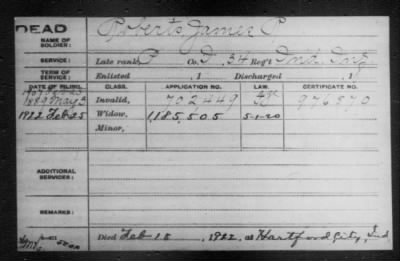 DEAD
NAME OF SOLDIER: Roberts, James P.
SERVICE: Late rank P Co. D, 34 Reg't Ind. Inf.
TERM OF SERVICE: Enlisted , 1 Discharged , 1
DATE OF FILING. CLASS. APPLICATION NO. LAW. CERTIFICATE NO.
1889 May 3 Invalid, 702,449 976870
1922 Feb 25 Widow, 1,185,505 5-1-20
Minor,
ADDITIONAL SERVICES:
REMARKS:
Died Feb 15, 1922, at Hartford City, Ind